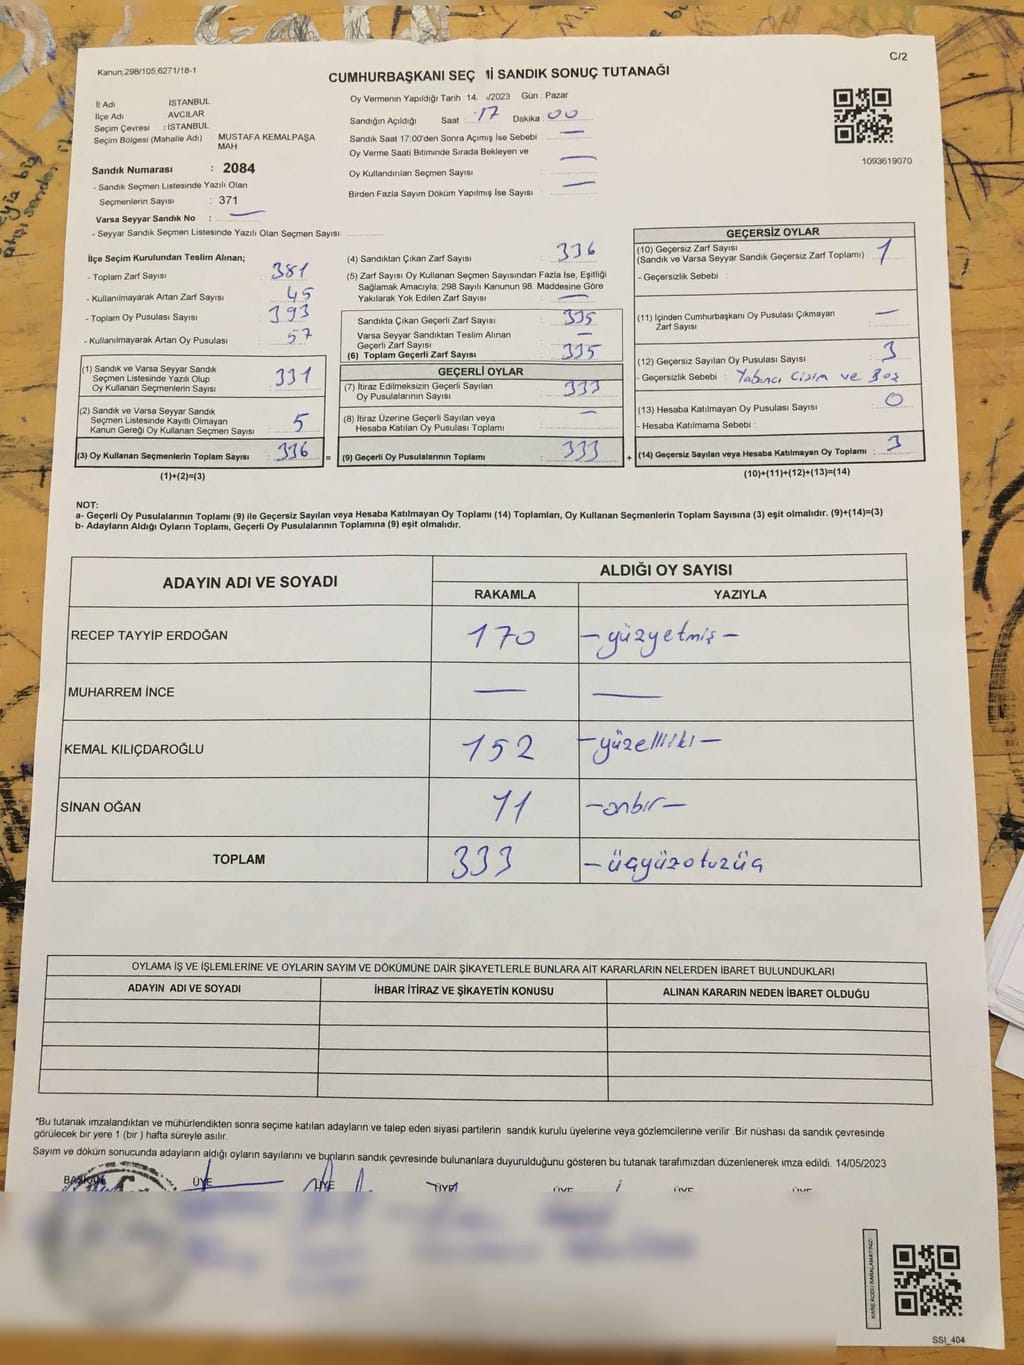 Kanun,298/105,6271/18-1
C/2
CUMHURBAŞKANI SEÇ İ SANDIK SONUÇ TUTANAĞI
İl Adı İSTANBUL
İlçe Adı AVCILAR
Seçim Çevresi : İSTANBUL
Seçim Bölgesi (Mahalle Adı) MUSTAFA KEMALPAŞA MAH
Sandık Numarası : 2084
- Sandık Seçmen Listesinde Yazılı Olan
Seçmenlerin Sayısı : 371
Varsa Seyyar Sandık No : —
- Seyyar Sandık Seçmen Listesinde Yazılı Olan Seçmen Sayısı:
Oy Vermenin Yapıldığı Tarih :14 /2023 Gün : Pazar
Sandığın Açıldığı Saat : 17 Dakika : 00
Sandık Saat 17:00'den Sonra Açımış İse Sebebi : —
Oy Verme Saati Bitiminde Sırada Bekleyen ve
Oy Kullandırılan Seçmen Sayısı : —
Birden Fazla Sayım Döküm Yapılmış İse Sayısı : —
1093619070
İlçe Seçim Kurulundan Teslim Alınan;
- Toplam Zarf Sayısı : 381
- Kullanılmayarak Artan Zarf Sayısı : 45
- Toplam Oy Pusulası Sayısı : 393
- Kullanılmayarak Artan Oy Pusulası : 57
(1) Sandık ve Varsa Seyyar Sandık
Seçmen Listesinde Yazılı Olup
Oy Kullanan Seçmenlerin Sayısı : 331
(2) Sandık ve Varsa Seyyar Sandık
Seçmen Listesinde Kayıtlı Olmayan
Kanun Gereği Oy Kullanan Seçmen Sayısı : 5
(3) Oy Kullanan Seçmenlerin Toplam Sayısı : 336 =
(1)+(2)=(3)
(4) Sandıktan Çıkan Zarf Sayısı : 336
(5) Zarf Sayısı Oy Kullanan Seçmen Sayısından Fazla İse, Eşitliği
Sağlamak Amacıyla; 298 Sayılı Kanunun 98. Maddesine Göre
Yakılarak Yok Edilen Zarf Sayısı : —
Sandıkta Çıkan Geçerli Zarf Sayısı : 335
Varsa Seyyar Sandıktan Teslim Alınan
Geçerli Zarf Sayısı : —
(6) Toplam Geçerli Zarf Sayısı : 335
GEÇERLİ OYLAR
(7) İtiraz Edilmeksizin Geçerli Sayılan
Oy Pusulalarının Sayısı : 333
(8) İtiraz Üzerine Geçerli Sayılan veya
Hesaba Katılan Oy Pusulası Toplamı : —
(9) Geçerli Oy Pusulalarının Toplamı : 333 +
GEÇERSİZ OYLAR
(10) Geçersiz Zarf Sayısı
(Sandık ve Varsa Seyyar Sandık Geçersiz Zarf Toplamı) : 1
- Geçersizlik Sebebi :
(11) İçinden Cumhurbaşkanı Oy Pusulası Çıkmayan
Zarf Sayısı : —
(12) Geçersiz Sayılan Oy Pusulası Sayısı : 3
- Geçersizlik Sebebi : Yabancı Cisim ve Boş
(13) Hesaba Katılmayan Oy Pusulası Sayısı : 0
- Hesaba Katılmama Sebebi :
(14) Geçersiz Sayılan veya Hesaba Katılmayan Oy Toplamı : 3
(10)+(11)+(12)+(13)=(14)
NOT:
a- Geçerli Oy Pusulalarının Toplamı (9) ile Geçersiz Sayılan veya Hesaba Katılmayan Oy Toplamı (14) Toplamları, Oy Kullanan Seçmenlerin Toplam Sayısına (3) eşit olmalıdır. (9)+(14)=(3)
b- Adayların Aldığı Oyların Toplamı, Geçerli Oy Pusulalarının Toplamına (9) eşit olmalıdır.
ADAYIN ADI VE SOYADI
ALDIĞI OY SAYISI
RAKAMLA YAZIYLA
RECEP TAYYİP ERDOĞAN 170 -yüzyetmiş-
MUHARREM İNCE — —
KEMAL KILIÇDAROĞLU 152 -yüzelliiki-
SİNAN OĞAN 11 -onbir-
TOPLAM 333 -üçyüzotuzüç
OYLAMA İŞ VE İŞLEMLERİNE VE OYLARIN SAYIM VE DÖKÜMÜNE DAİR ŞİKAYETLERLE BUNLARA AİT KARARLARIN NELERDEN İBARET BULUNDUKLARI
ADAYIN ADI VE SOYADI İHBAR İTİRAZ VE ŞİKAYETİN KONUSU ALINAN KARARIN NEDEN İBARET OLDUĞU
*Bu tutanak imzalandıktan ve mühürlendikten sonra seçime katılan adayların ve talep eden siyasi partilerin sandık kurulu üyelerine veya gözlemcilerine verilir .Bir nüshası da sandık çevresinde
görülecek bir yere 1 (bir ) hafta süreyle asılır.
Sayım ve döküm sonucunda adayların aldığı oyların sayılarını ve bunların sandık çevresinde bulunanlara duyurulduğunu gösteren bu tutanak tarafımızdan düzenlenerek imza edildi. 14/05/2023
BAŞKAN ÜYE ÜYE ÜYE ÜYE ÜYE ÜYE
SSI_404